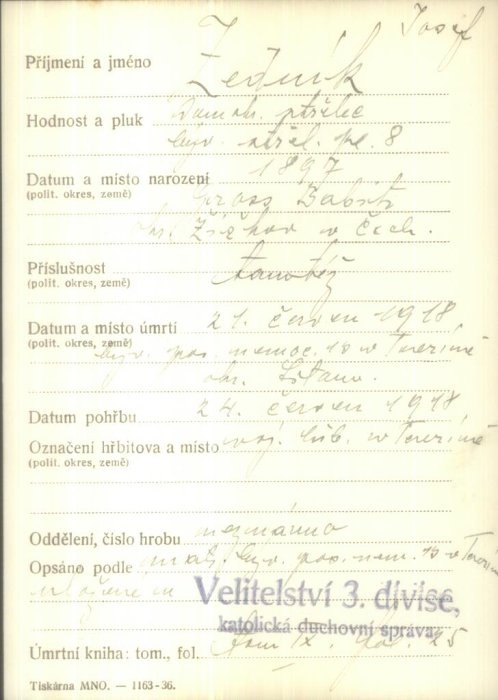 Josef
Příjmení a jméno Zedník
Hodnost a pluk domob. střelec
býv. střel. pl. 8
1897
Datum a místo narození
(polit. okres, země) Gross Babitz
okr. Žižkov v Čech.
Příslušnost tamtéž
(polit. okres, země)
Datum a místo úmrtí 21. červen 1918,
(polit. okres, země) býv. pos. nemoc. 13 v Terezíně
okr. Litom.
Datum pohřbu 24. červen 1918,
Označení hřbitova a místo voj. hřb. v Terezíně
(polit. okres, země)
Oddělení, číslo hrobu neznámo
Opsáno podle mat. býv. pos. nem. 13 v Terezín
uložené
Velitelství 3. divise,
katolická duchovní správa.
Úmrtní kniha: tom., fol. tom IX. fol. 25
Tiskárna MNO. — 1163-36.